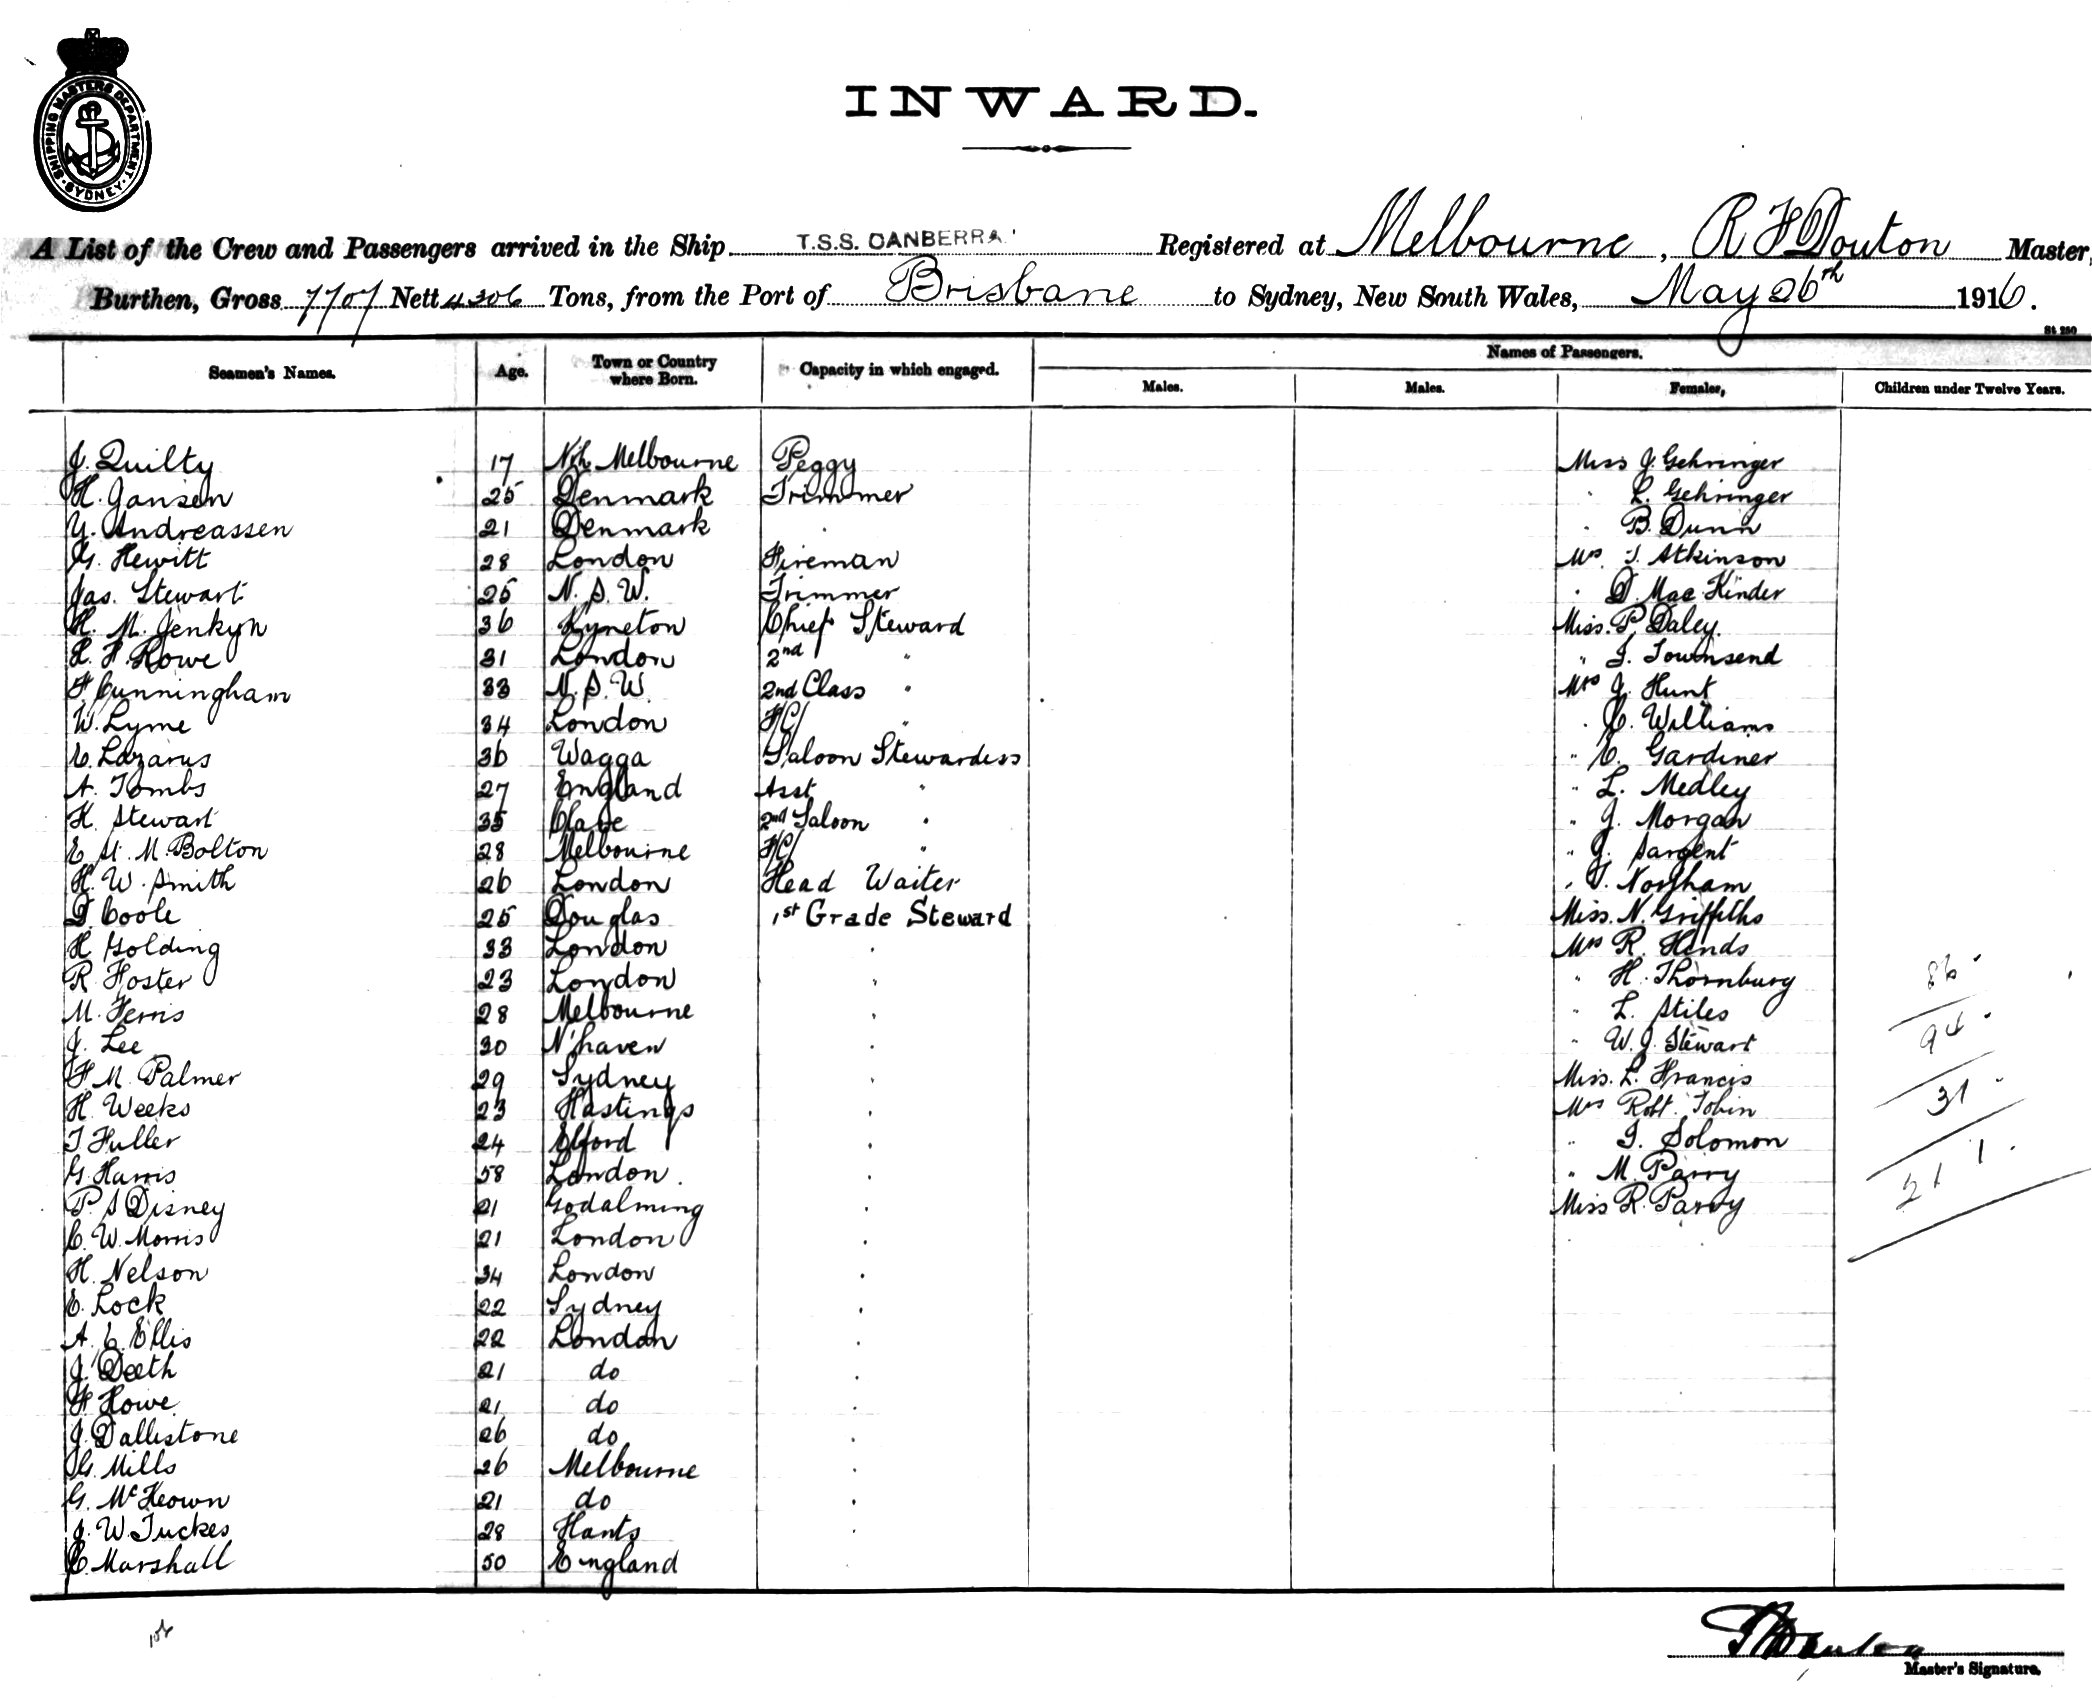 SHIPPING MASTERS DEPARTMENT. SYDNEY.
INWARD.
A List of the Crew and Passengers arrived in the Ship T.S.S. CANBERRA. Registered at Melbourne, R F Douton Master,
Burthen, Gross 7707 Nett 4306 Tons, from the Port of Brisbane to Sydney, New South Wales, May 26th 1916.
St 250
Seamen's Names. Age. Town or Country where Born. Capacity in which engaged. Names of Passengers.
Males. Males. Females, Children under Twelve Years.
J. Quilty 17 Nth Melbourne Peggy Miss J. Gehringer
H. Jansen 25 Denmark Trimmer " L. Gehringer
Y. Andreassen 21 Denmark " B. Dunn
G. Hewitt 28 London Fireman Mrs. T. Atkinson
Jas. Stewart 25 N.S.W. Trimmer " D. Mac Kinder
R. M. Jenkyn 36 Kyneton Chief Steward Miss. P. Daley.
H. F. Rowe 31 London 2nd " " J. Townsend
F Cunningham 33 N.S.W. 2nd Class " Mrs J. Hunt
W. Lyme 34 London F/C/ " " C. Williams
C. Lazarus 36 Wagga Saloon Stewardess " E. Gardiner
A. Tombs 27 England Asst " " L. Medley
H. Stewart 35 Clare 2nd Saloon " " J. Morgan
E. M. Bolton 28 Melbourne F/C/ " " J. Sargent
H. W. Smith 26 London Head Waiter " Norgham
D. Coole 25 Douglas 1st Grade Steward Miss. N. Griffiths
H Golding 33 London " Mrs R. Hinds
R. Foster 23 London " " H. Thornburg
M. Ferris 28 Melbourne " " L. Stiles
J. Lee 30 N'haven " " W. J. Stewart
F. M. Palmer 29 Sydney " Miss. L. Francis
H. Weeks 23 Hastings " Mrs Robt. Tobin
T Fuller 24 " " J. Solomon
G. Harris 58 London. " " M. Parry
P. S Disney 21 Godalming " Miss R. Parry
C. W. Morris 21 London "
H. Nelson 34 London "
E. Lock 22 Sydney "
A. C. Ellis 22 London "
J. Deeth 21 do "
F Howe 21 do "
J. Dallistone 26 do "
G. Mills 26 Melbourne "
G. McKeown 21 do "
J. W. Tuckes 28 Hants "
C. Marshall 50 England "
86
94
31
1
211
106
Master's Signature.